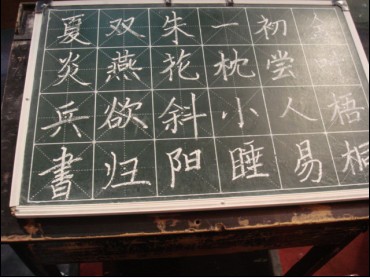 梧桐
初尝人易
一枕小睡
朱花斜阳
双燕欲归
夏炎兵書